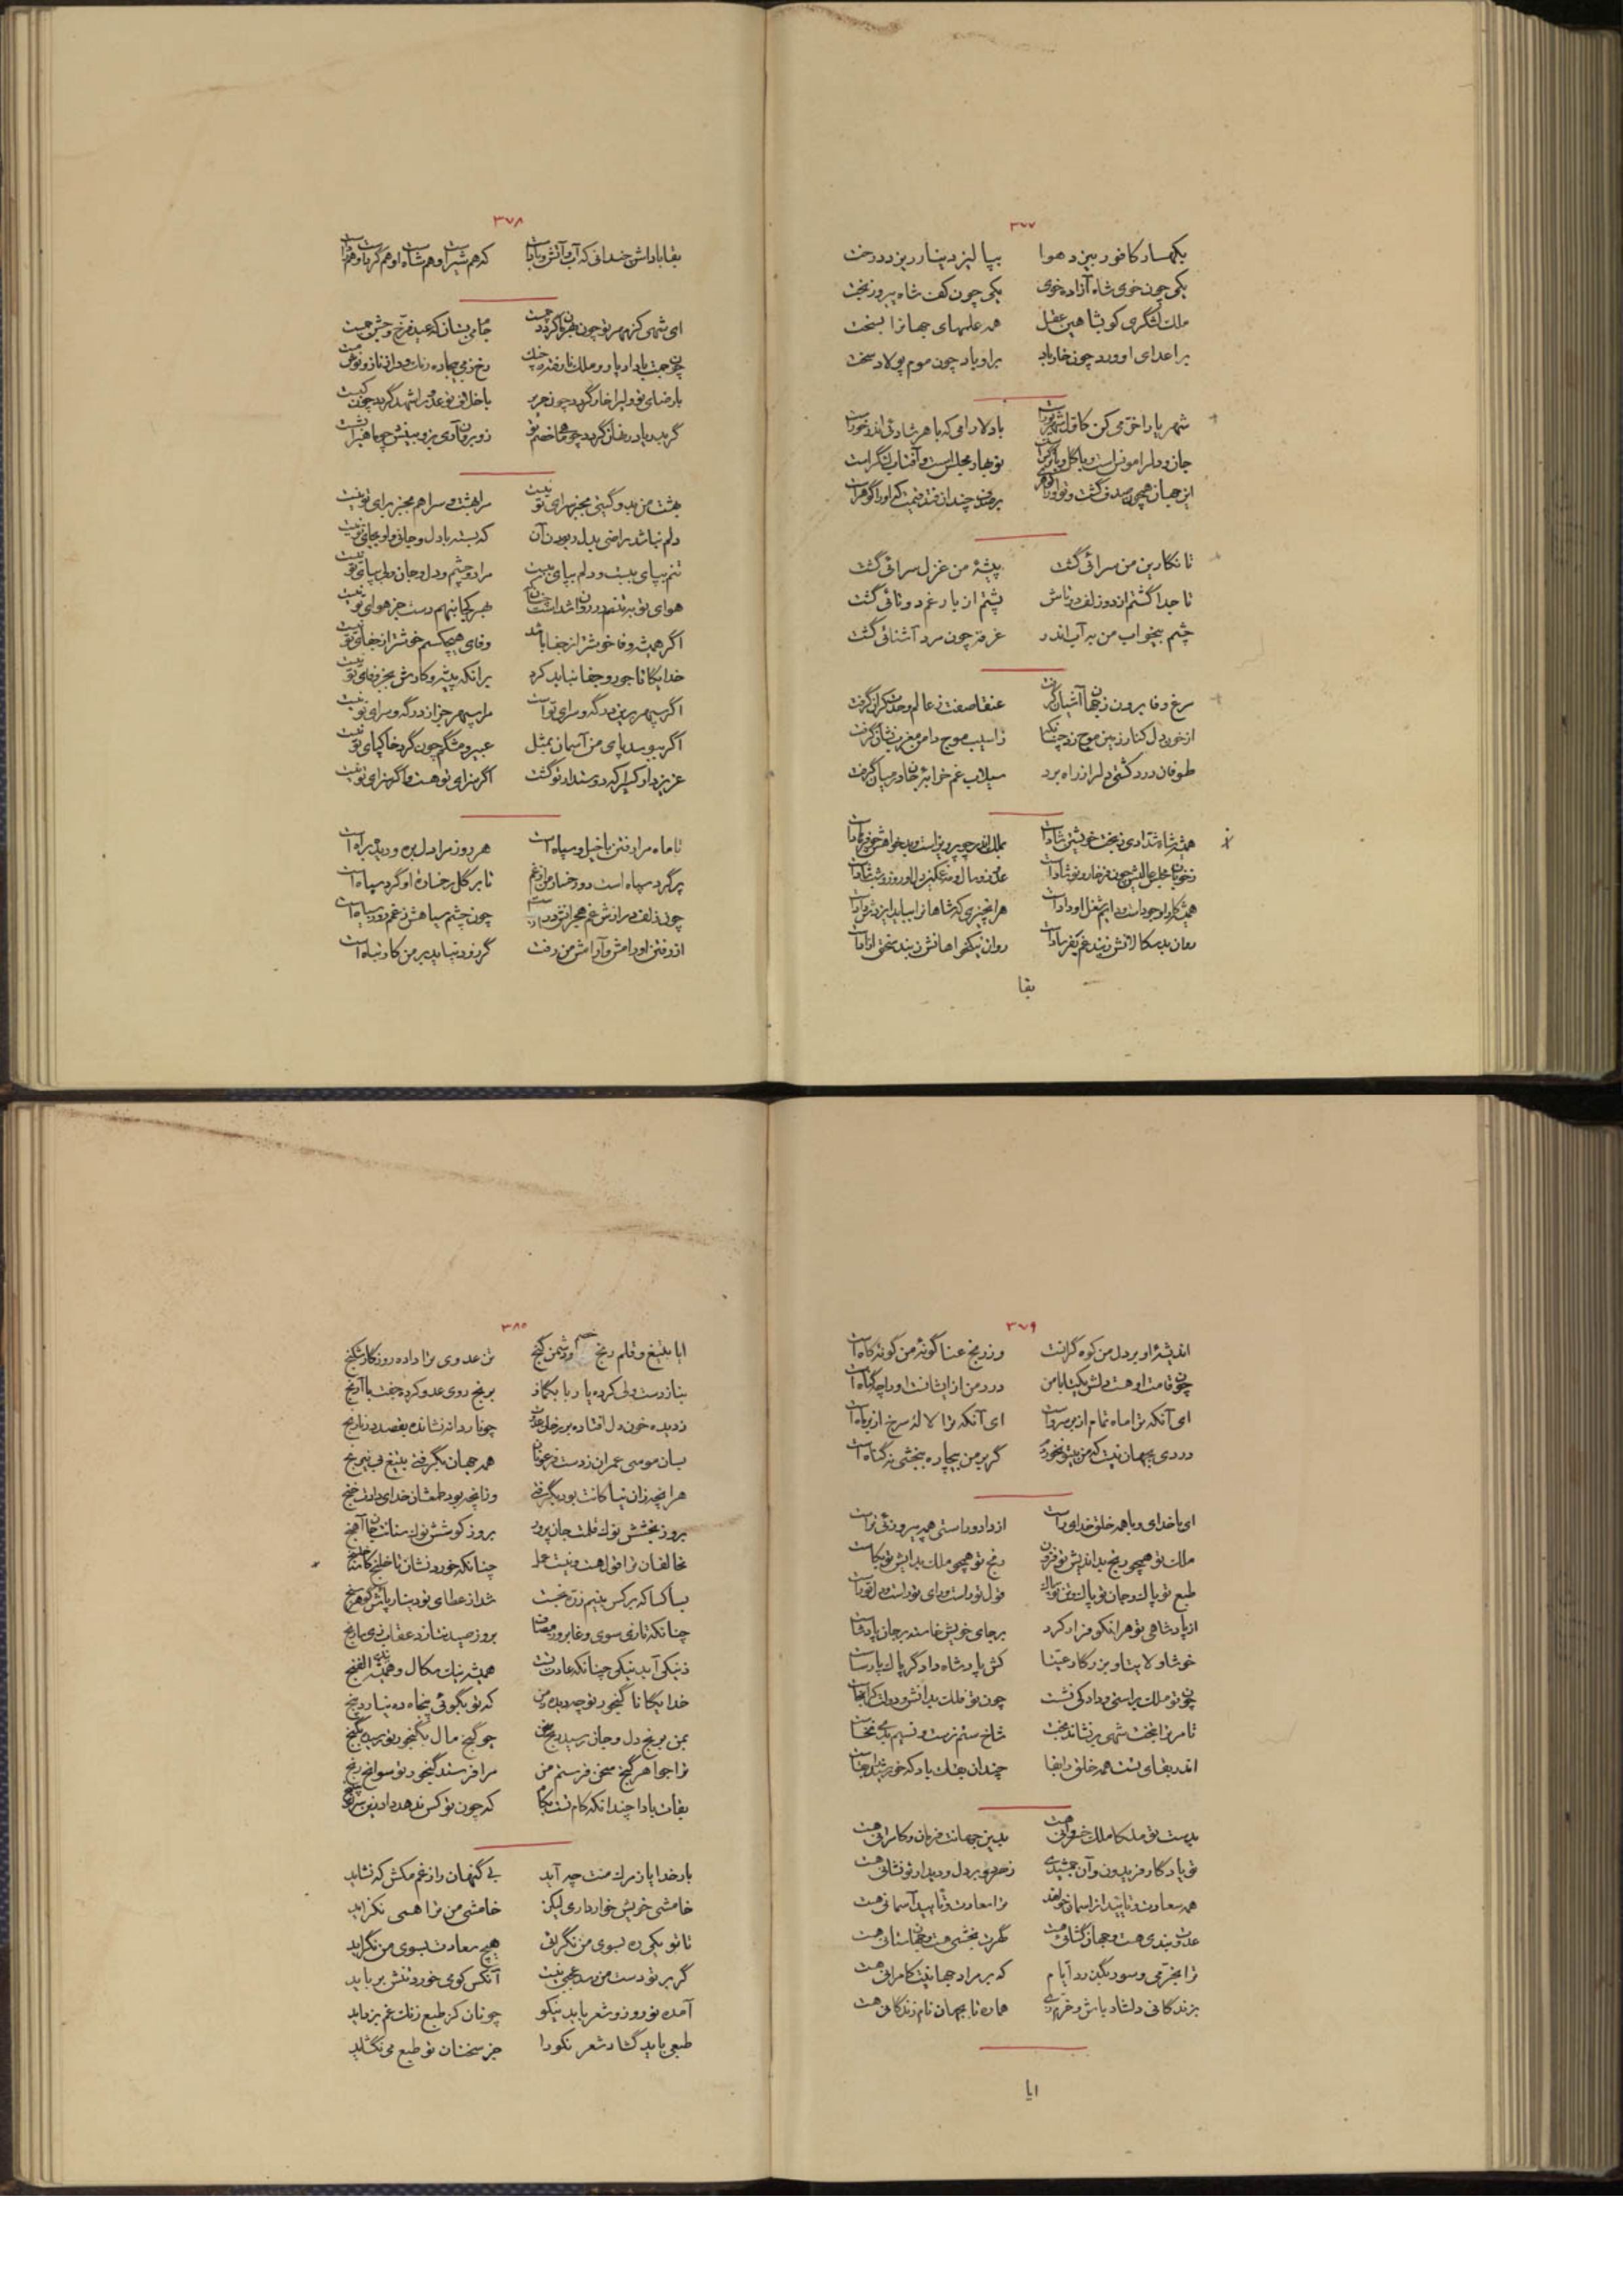 ۳۷۷
بکهسار کافور بیزد هوا بپالیز دینار ریزد درخت
یکی چون خوی شاه آزاده خوی یکی چون کف شاه پیروز بخت
ملک لشگری کو بشاهین عقل همه علمهای جهانرا بسخت
بر اعدای او ورد چون خار باد بر او باد چون موم پولاد سخت
شهریارا خرمی کن کاول شهریور است باد لارامی که با هر شادئی اندر خور است
جان و دلرا مونس است و با گل و با نوبهار مجلس است و آفتاب لشگر است
این جهان همچون صدف گشت و تو او را گوهر است
تا نگارین من سرائی گشت پیشهٔ من غزل سرائی گشت
تا جدا گشتم از دو زلف دوتاش پشتم از بار غم دوتائی گشت
چشم بیخواب من به آب اندر غرقه چون مرد آشنائی گشت
مرغ وفا برون ز جهان آشیان گرفت عنقا صفت ز عالم وحدت کران گرفت
از خون دل کنار زمین موج زد چنانکه ز آسیب موج دامن مغرب نشان گرفت
طوفان درد کشتی دلرا ز راه برد سیلاب غم خرابهٔ جان در میان گرفت
همیشه شاه شدادی ز بخت خویشتن شاد است
همیشه کار او جود است و دایم شغل او داد است هر آنچیزی که شاهانرا بباید ایزدش داد است
روان بدسگالانش ز بند غم بفریاد است روان نیکخواهانش ز بند سختی آزاد است
بقا
۳۷۸
بقا باداش چندانی که آب و آتش و باد است که هم شیر او هم شاه او هم گرد او هم
بهشت من بدو گیتی بجز سرای تو نیست مرا بهشت و سرا هم بجز برای تو نیست
دلم نباشد راضی ببدل دیدن آن که بسته با دل و جان و لو بجای تو نیست
تنم بپای بیست و دلم بپای بیست مرا دو چشم و دل و جان ولی بپای تو نیست
بهر کجا بنهم دست جز هوای تو نیست
اگر همیشه وفا خوشتر از جفا باشد وفای هیچکسم خوشتر از جفای تو نیست
خدایگانا جور و جفا نباید کرد بر آنکه پیشه و کارش بجز وفای تو نیست
اگر سپهر برین درگه و سرای تو است مرا سپهر جز از درگه و سرای تو نیست
اگر ببوسد پای من آسمان بمثل عبیر و مشگم چون گرد خاکپای تو نیست
عزیز دار کسیرا که دوستدار تو گشت اگر سزای تو هست و اگر سزای تو نیست
تا ماه مرا رفتن با خیل و سپاه است هر روز مرا دل بره و دیده براه است
پر گرد سپاه است دو رخسار من از غم تا بر گل رخسارهٔ او گرد سپاه است
چون زلف درازش غم هجرانش دراز است چون چشم سیاهش ز غمم روز سیاه است
از رفتن او رامش و آرامش من رفت گر زود نیاید بر من کار تباه است
۳۷۹
اندیشهٔ او بر دل من کوه گرانست وز رنج عنا گونهٔ من گونهٔ کاه است
چون قامت او هست دلش یکتا با من درد من از ایشانست او را چه گناه است
ای آنکه ترا ماه تمام از بر سرو است ای آنکه ترا لالهٔ سرخ از بر ماه است
دردی بجهان نیست که من بیتو نخوردم گر بر من بیچاره ببخشی نه گناه است
ای با خدای و با همه خلق خدای راست از داد و راستی همه پیروزئی تراست
ملک تو همچو رنج بداندیش تو فزون رنج تو همچو ملک بداندیش تو بکاست
طبع تو پاک و جان تو پاک و تن تو پاک قول تو راست و رای تو راست و دل تو راست
از پادشاهی تو هر آنکو فرار کرد بر جای خویش خاسته بر جان پادشاست
خوشا ولایتا و بزرگا رعیتا کش پادشاه دادگر پاک پارساست
چون تو ملک براستی و داد کی نشست چون تو ملک بدانش و دولت کرا بخاست
تا مر ترا بتخت شهی بر نشاند بخت شاخ ستم نرست و نسیم بدی نخاست
اندر بقای تست همه خلق را بقا چندان بقات باد که خورشید را بقاست
بدست تو ملکا ملک خسروانی هست بدین جهانت فرمان و کامرانی هست
تو یادگار فریدون و آن جمشیدی ز هر دو بر دل و دیدار تو نشانی هست
همه سعادت و تایید از آسمان خواهند ترا سعادت و تایید آسمانی هست
عدوت بندی هست و جهان گشائی هست گهرت بخشی هست و جهان ستانی هست
ترا بخرمی و سور بگذرد ایام که بر مراد جهانیت کامرانی هست
بزندگانی دلشاد باش و خرم زی هماره تا بجهان نام زندگانی هست
ایا
۳۸۰
ایا بتیغ و قلم رنج خصم و دشمن گنج تن عدوی ترا داده روزگار شکنج
بناز دست ولی کرده یار با بگماز برنج روی عدو کرده جفت با آرنج
ز دیده خون دل افتاده بر رخان عدوت چو ناردانه نشانده بقصد در نارنج
بسان موسی عمران ز دست فرعونان همه جهان بگرفتی بتیغ بی نیرنج
هر آنچه زان نیاکانت بود بگرفتی وز آنچه بود طمعشان خدای دادت پنج
بروز بخشش نوک قلمت جان پرور بروز کوشش نوک سنانت جان آهنج
بسا کسا که بر کس بنیم ذره نجست شد از عطای تو دینار پاش گوهر سنج
چنانکه تازی سوی وغا بروز مصاف بروز صید نتازد عقاب زی مارنج
ز نیکی آید نیکی چنانکه عادت تست همیشه نیک سگال و همیشه نیکی الفنج
خدایگانا گنجور تو چه دید ز من که تو بگوئی پنجاه ده نیارد پنج
بمن برنج دل و جان رسید رنج سخن چو گنج مال بگنجور تو رسید بگنج
ترا جواهر گنج سخن فرستم من مرا فرستد گنجور تو سوانح رنج
بقات بادا چندانکه کام تست بکام که چون تو کس ندهد داد این سرای سپنج
بار خدایا ز مرک منت چه آید بی گنهان را ز غم مکش که نشاید
خامشی خویش خوار داری لیکن خامشی من ترا همی نگزاید
تا تو یکی ره بسوی من نگرستی هیچ سعادت بسوی من نگراید
گر بر تو دست من رسد عجبی نیست آنکس کو می خورد تنش بر باید
آمده نوروز و شعر باید نیکو چونان کز طبع زنک غم بزداید
طبعی باید گشاد شعر نکو را جز سخنان تو طبع می نگشاید